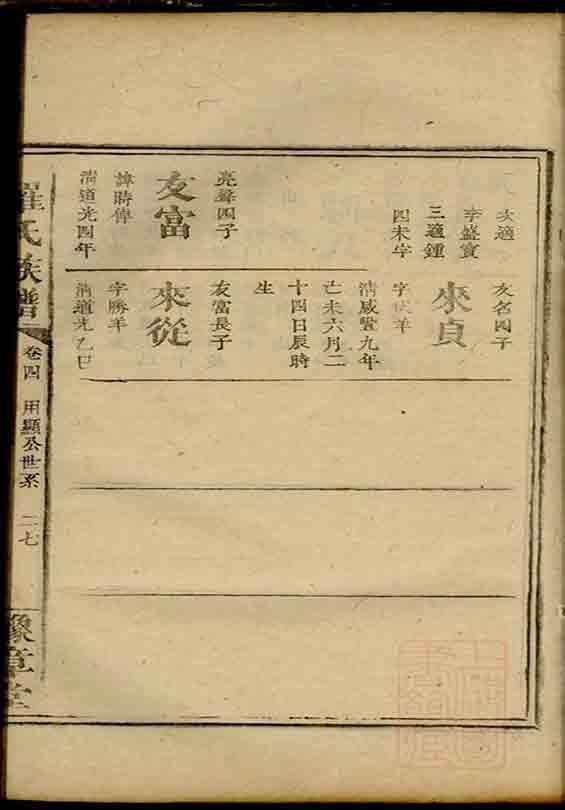 次適
李盛賓
三適鍾
四未字
亮聲四子
友富
諱時偉
清道光四年
友名四子
來貞
字 羊
清咸豐九年
亡未六月二
十四日辰時
生
友富長子
來從
字勝羊
清道光乙巳
羅氏族譜
卷四
用顯公世系
二七
豫章堂